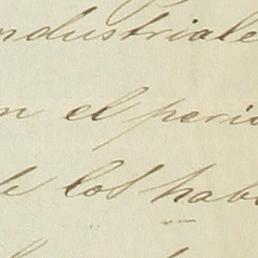 ndustriale
n el perio
de los hab